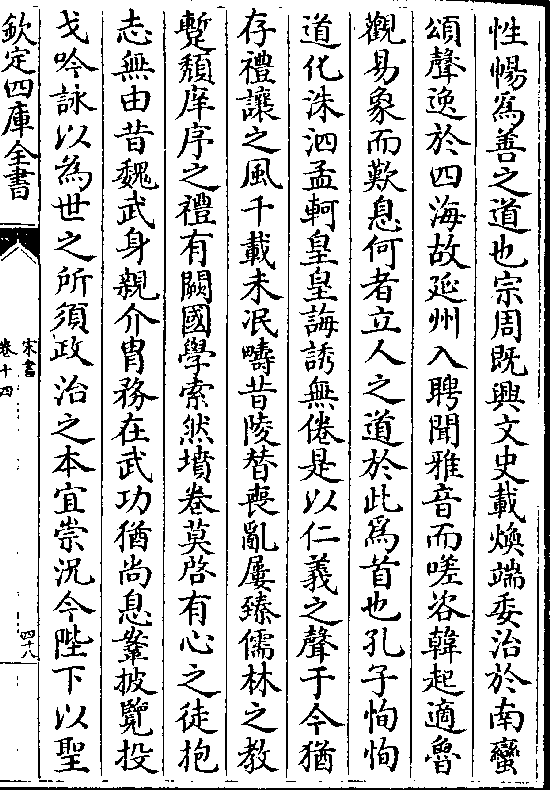 性暢為善之道也宗周既興文史載煥端委治於南蠻
頌聲逸於四海故延州入聘聞雅音而嗟咨韓起適魯
觀易象而歎息何者立人之道於此為首也孔子恂恂
道化洙泗孟軻皇皇誨誘無倦是以仁義之聲于今猶
存禮讓之風千載未泯疇昔陵替喪亂屢臻儒林之教
蹔頹庠序之禮有闕國學索然墳卷莫啓有心之徒抱
志無由昔魏武身親介胄務在武功猶尚息鞌披覽投
戈吟詠以為世之所須政治之本宜崇況今陛下以聖
欽定四庫全書
宋書
卷十四
四八